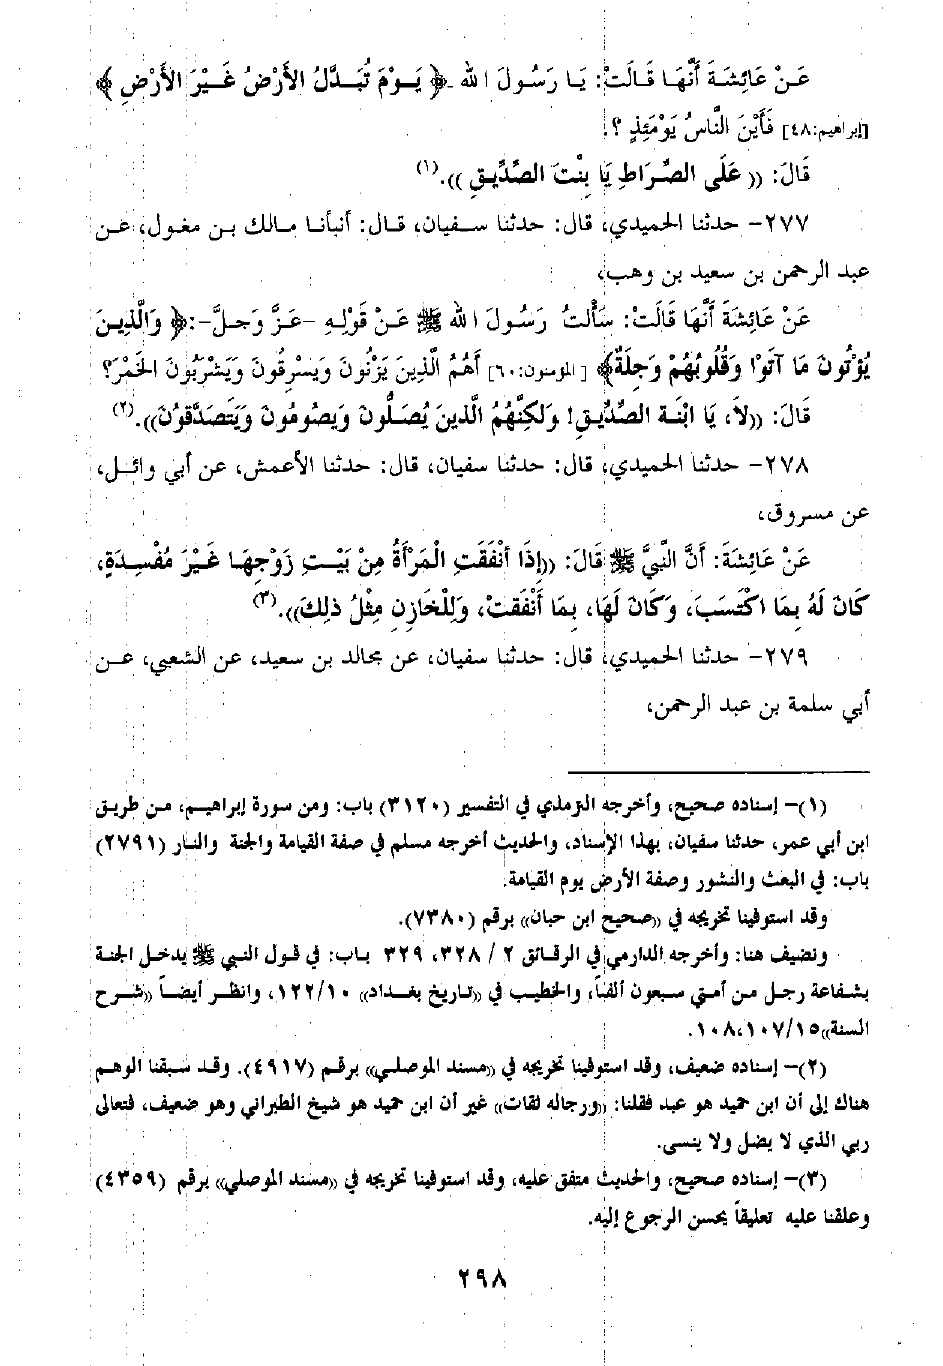 عَنْ عَائِشَةَ أَنَّهَا قَالَتْ: يَا رَسُولَ الله ـ﴿ يَوْمَ تُبَدَّلُ الأَرْضُ غَيْرَ الأَرْضِ ﴾
[إبراهيم:٤٨] فَأَيْنَ النَّاسُ يَوْمَئِذٍ ؟.
قَالَ: ((عَلَى الصِّرَاطِ يَا بِنْتَ الصِّدِّيقِ)).(١)
٢٧٧- حدثنا الحميدي، قال: حدثنا سفيان، قال: أنبأنا مالك بن مغول، عن
عبد الرحمن بن سعيد بن وهب،
عَنْ عَائِشَةَ أَنَّهَا قَالَتْ: سَأَلتُ رَسُولَ الله ﷺ عَنْ قَوْلِهِ -عَزَّ وَجلَّ-:﴿ وَالَّذِينَ
يُؤْتُونَ مَا آتَوْا وَقُلُوبُهُمْ وَجِلَةٌ﴾ [المؤمنون:٦٠] أَهُمُ الَّذِينَ يَزْنُونَ وَيَسْرِقُونَ وَيَشْرَبُونَ الخَمْرَ؟
قَالَ: ((لاَ، يَا ابْنَةَ الصِّدِّيقِ! وَلكِنَّهُمُ الَّذينَ يُصَلُّونَ وَيصُومُونَ وَيَتَصَدَّقُونَ)).(٢)
٢٧٨- حدثنا الحميدي، قال: حدثنا سفيان، قال: حدثنا الأعمش، عن أبي وائل،
عن مسروق،
عَنْ عَائِشَةَ: أَنَّ النَّبِيَّ ﷺ قَالَ: ((إِذَا أَنْفَقَتِ الْمَرْأَةُ مِنْ بَيْتِ زَوْجِهَا غَيْرَ مُفْسِدَةٍ،
كَانَ لَهُ بِمَا اكْتَسَبَ، وَكَانَ لَهَا، بِمَا أَنْفَقتْ، وَلِلْخَازِنِ مِثْلُ ذلِكَ)).(٣)
٢٧٩- حدثنا الحميدي، قال: حدثنا سفيان، عن مجالد بن سعيد، عن الشعبي، عن
أبي سلمة بن عبد الرحمن،
(١)- إسناده صحيح، وأخرجه الترمذي في التفسير (٣١٢٠) باب: ومن سورة إبراهيم، من طريق
ابن أبي عمر، حدثنا سفيان، بهذا الإسناد، والحديث أخرجه مسلم في صفة القيامة والجنة والنار (٢٧٩١)
باب: في البعث والنشور وصفة الأرض يوم القيامة.
وقد استوفينا تخريجه في ((صحيح ابن حبان)) برقم (٧٣٨٠).
ونضيف هنا: وأخرجه الدارمي في الرقائق ٢ / ٣٢٨، ٣٢٩ باب: في قول النبي ﷺ يدخل الجنة
بشفاعة رجل من أمتي سبعون ألفاً، والخطيب في ((تاريخ بغداد)) ١٢٢/١٠، وانظر أيضاً ((شرح
السنة))١٠٧/١٥،١٠٨.
(٢)- إسناده ضعيف، وقد استوفينا تخريجه في ((مسند الموصلي)) برقم (٤٩١٧). وقد سبقنا الوهم
هناك إلى أن ابن حميد هو عبد فقلنا: ((ورجاله ثقات)) غير أن ابن حميد هو شيخ الطبراني وهو ضعيف، فتعالى
ربي الذي لا يضل ولا ينسى.
(٣)- إسناده صحيح، والحديث متفق عليه، وقد استوفينا تخريجه في ((مسند الموصلي)) برقم (٤٣٥٩)
وعلقنا عليه تعليقاً يحسن الرجوع إليه.
٢٩٨